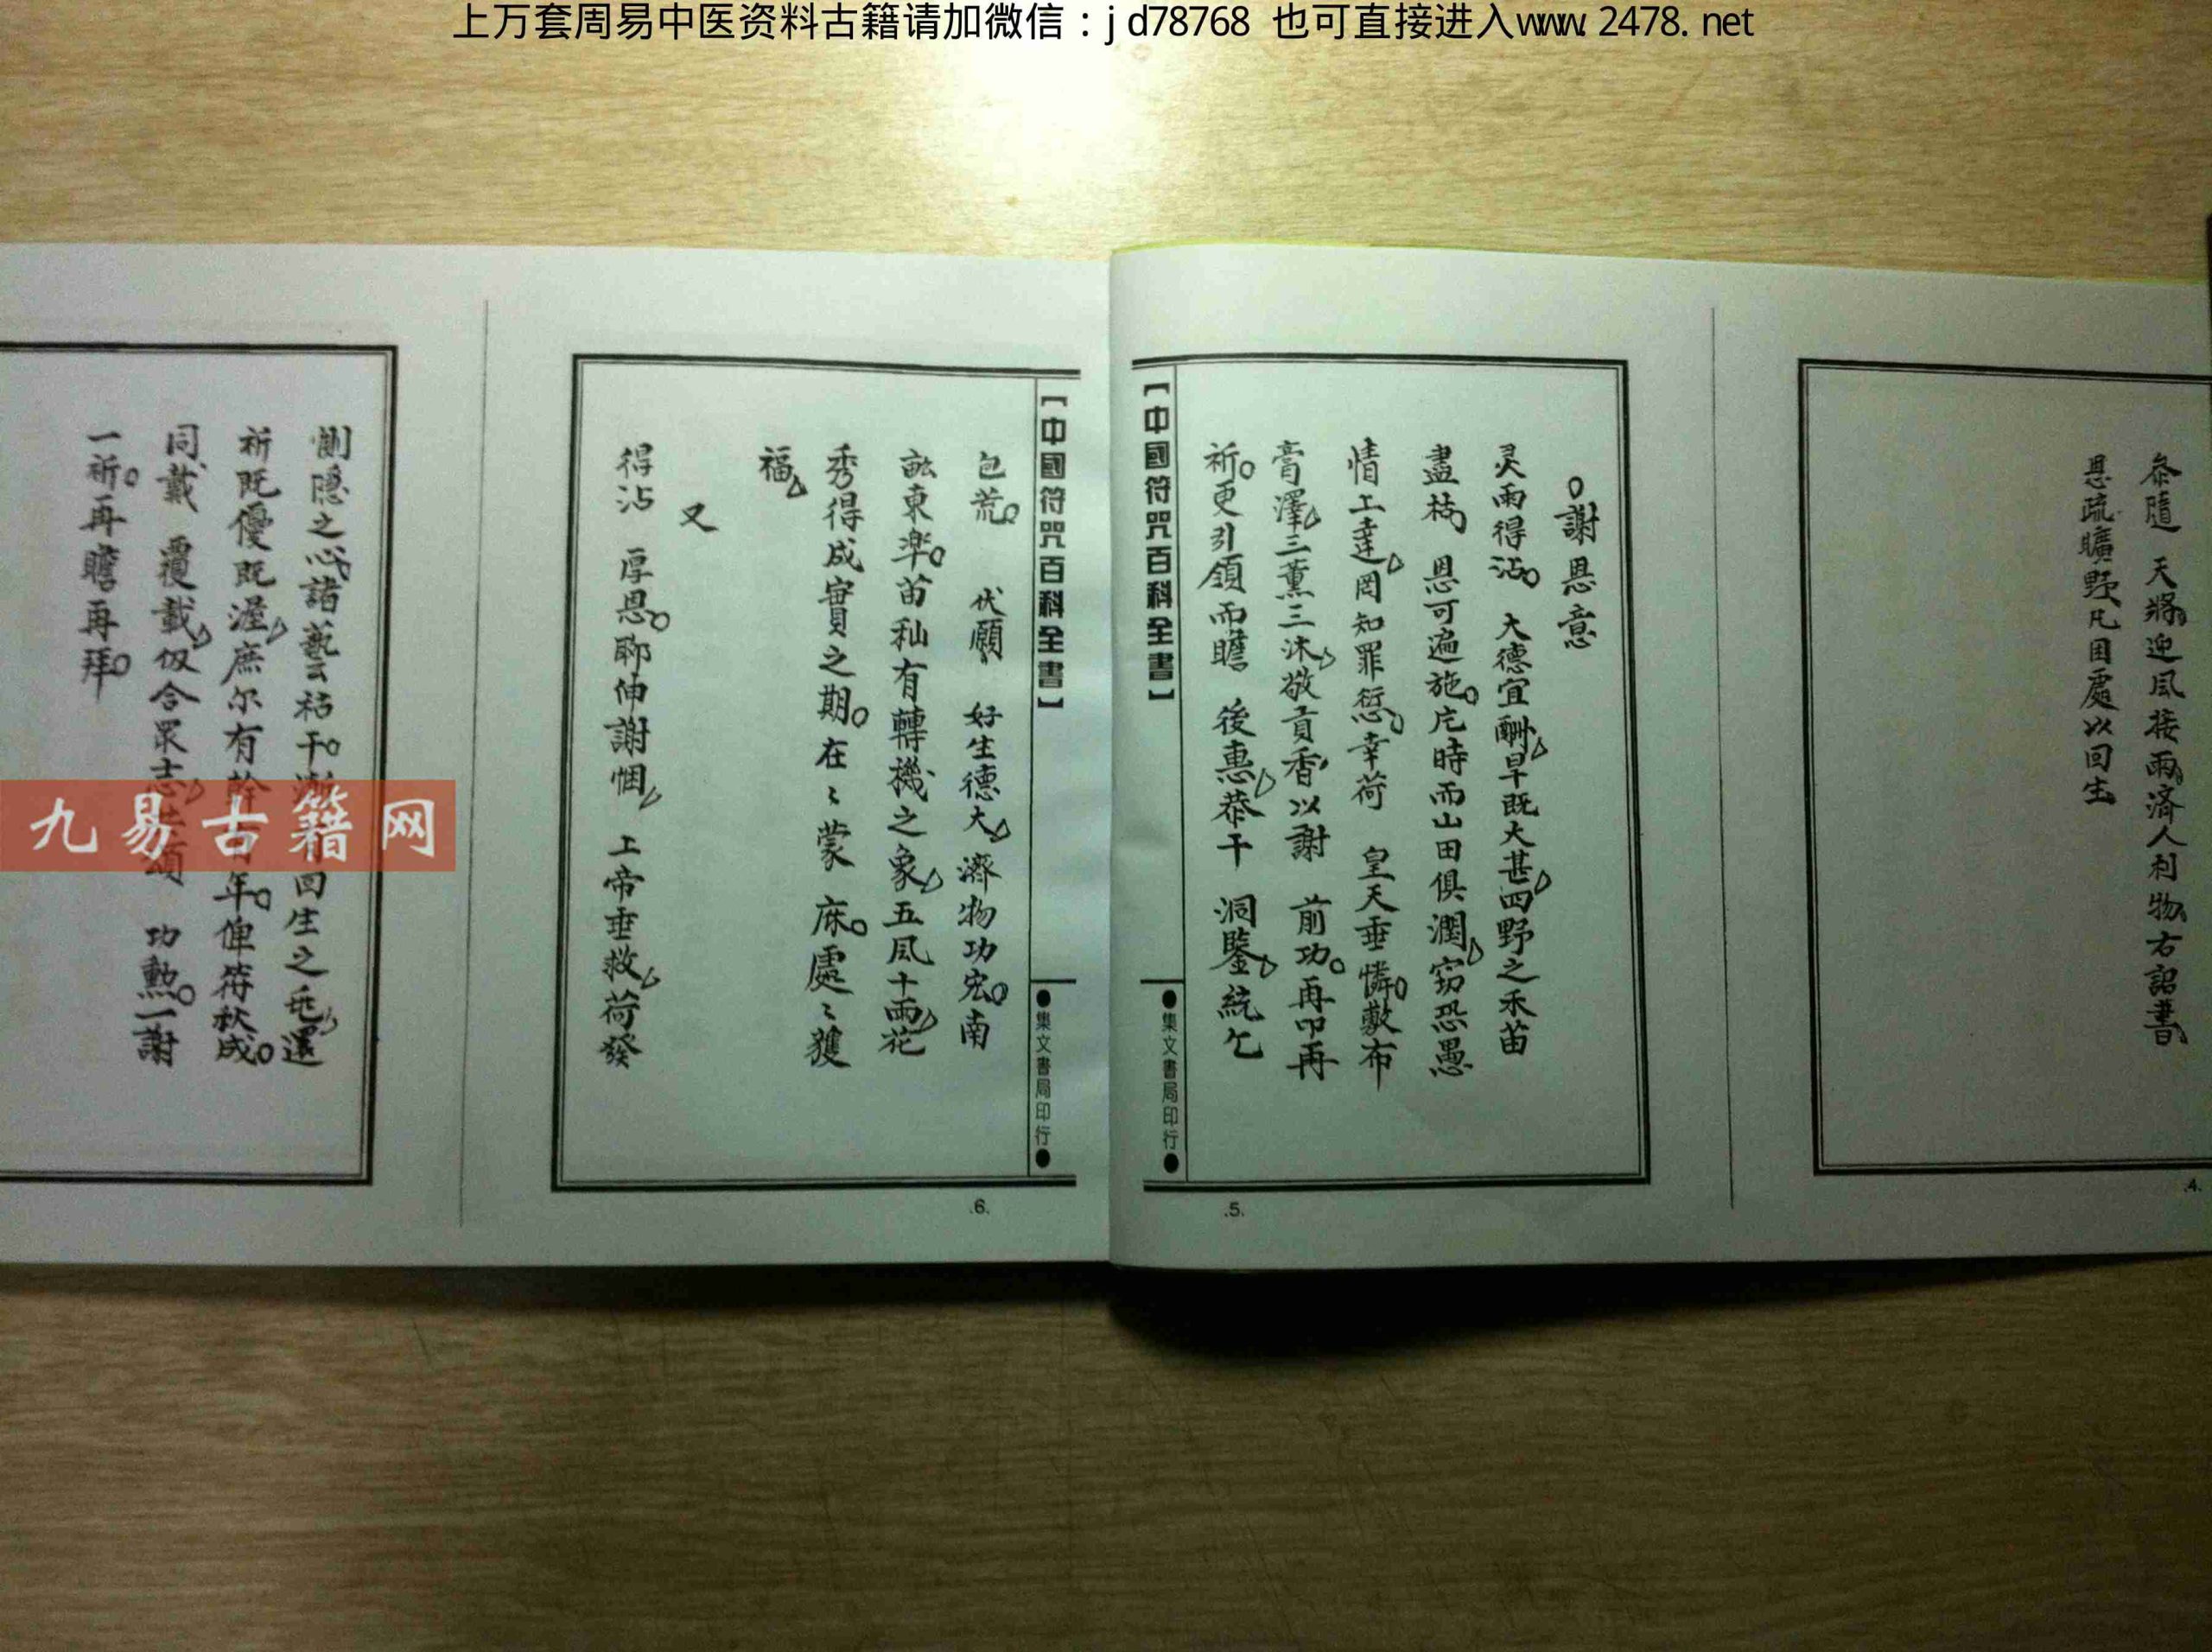 上万套周易中医资料古籍请加微信：jd78768 也可直接进入www.2478.net
天將迎風接雨濟人利物右詔書
恩疏曠野凡困處以回生
.4.
○謝恩意
灵雨得沾。大德宜酬旱既大甚四野之禾苗
盡枯 恩可遍施。片時而山田俱潤窃恐愚
情上達罔知罪愆。幸荷 皇天垂憐。敷布
膏澤三薰三沐敬貢香以謝 前功。再叩再
祈。更引領而瞻 後惠恭干 洞鑒統乞
【中國符咒百科全書】
●集文書局印行●
.5.
【中國符咒百科全書】
●集文書局印行●
包荒。 伏願 好生德大濟物功宏。南
畝東㮛。苗秈有轉機之象五風十雨花
秀得成實之期。在々蒙 庥。處々獲
福
又
得沾 厚恩。聊伸謝悃 上帝垂救荷發
.6.
惻隱之心諸藝枯干。回生之 還
祈既優既渥庶尔有 年。俾符秋成。
同戴 覆載仅合眾志 頌 功勲。一謝
一祈。再瞻再拜。
九易古籍网